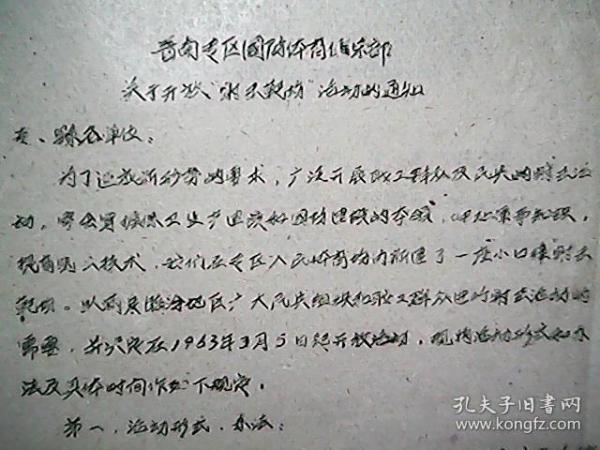 晋南专区国防体育俱乐部
关于开放“射击靶场”活动的通知
专、县各单位：
为了适应新形势的要求，广泛开展职工群众及民兵的射击活
动，学会军事知识，
提高射击技术，我们在专区人民体育场内新建了一座小口径射击
靶场。以满足临汾地区广大民兵组织和职工群众进行射击活动的
需要，并决定在1963年3月5日起开放活动，现将活动形式和办
法及具体时间作如下规定。
第一，活动形式、办法：
孔夫子旧书网
www.kongfz.com